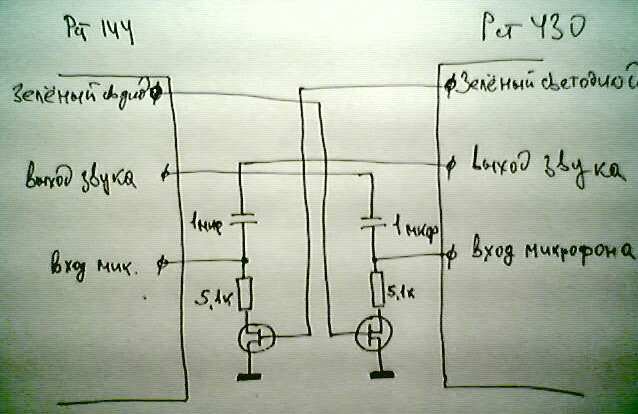 Рст 144
Рст 430
Зелёный св диод
Зелёный светодиод
выход звука
выход звука
1 мкф
1 мкф
вход мик.
вход микрофона
5,1к
5,1к